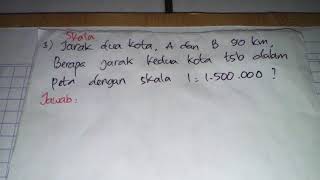 Skala
3) Jarak dua kota, A dan B 90 km,
Berapa jarak kedua kota tsb dalam
Peta dengan skala 1 : 1.500.000 ?
Jawab :